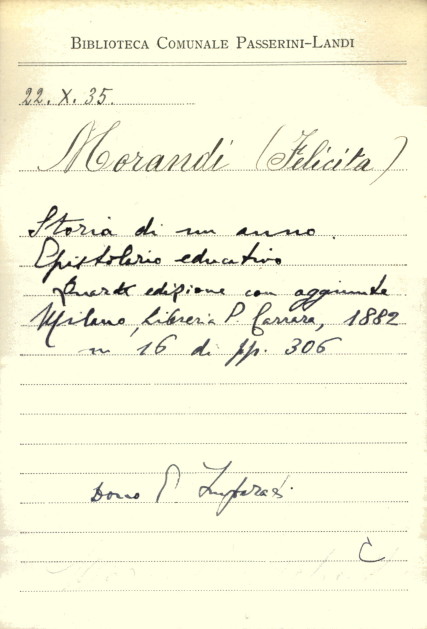 BIBLIOTECA COMUNALE PASSERINI-LANDI
22. X. 35.
Morandi (Felicita)
Storia di un anno.
Epistolario educativo
Quarta edizione con aggiunte
Milano, Libreria P. Carrara, 1882
in 16 di pp. 306
Dono P.
C